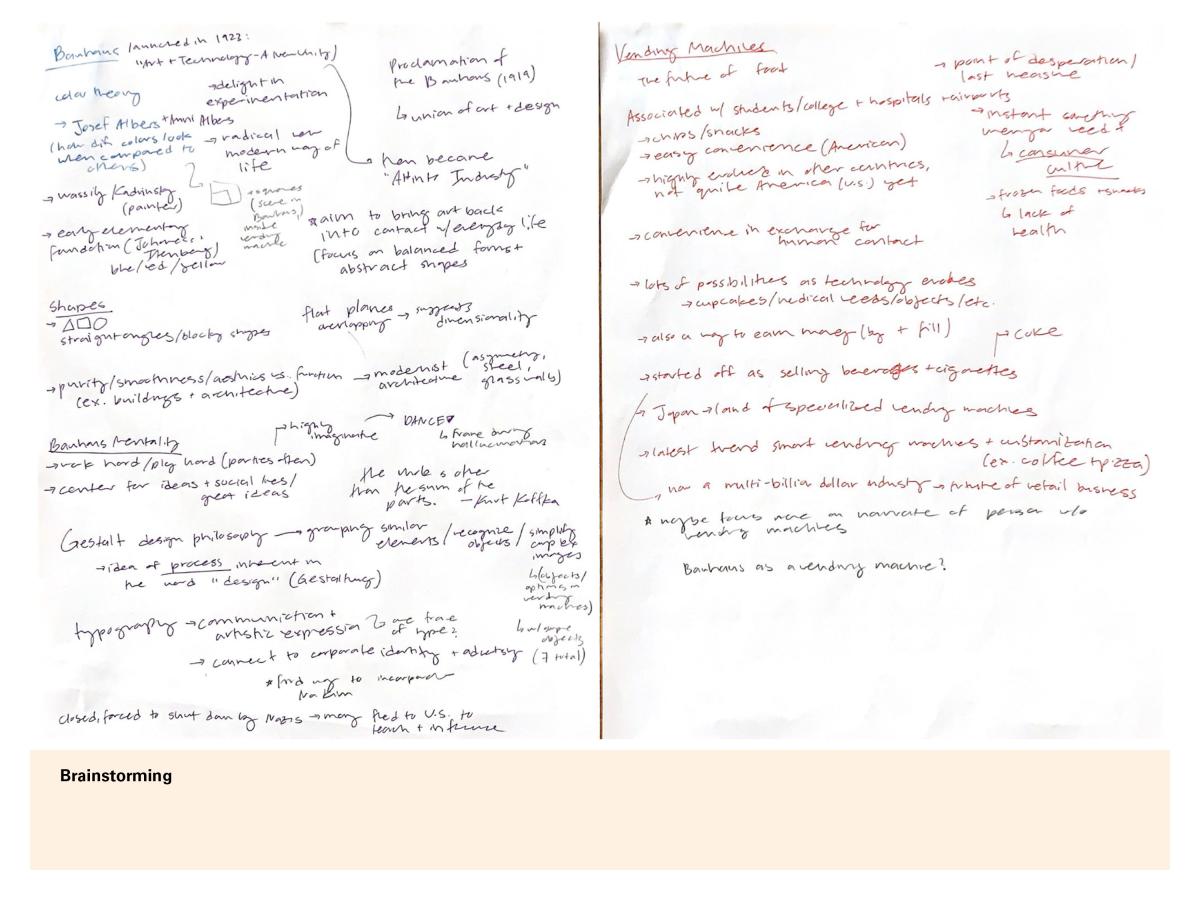 Bauhaus launched in 1923:
"Art + Technology - A New Unity"
color theory
→ delight in
experimentation
→ Josef Albers + Anni Albers
(how diff colors look
when compared to
others)
→ radical new
modern way of
life
→ squares
(seen in
Bauhaus,
inside
vending
machine
→ wassily Kadinsky
(painter)
→ early elementary
foundation (Johannes,
blue/red/yellow
Proclamation of
the Bauhaus (1919)
↳ union of art + design
then became
"Art into Industry"
* aim to bring art back
into contact w/ everyday life
(focus on balanced forms +
abstract shapes
Shapes
→ △□○
straight angles/blocky shapes
flat planes
overlapping → suggests
dimensionality
→ purity/smoothness/aesthetics vs. function
(ex. buildings + architecture)
→ modernist
architecture
(asymmetry,
steel,
glass walls)
Bauhaus Mentality
→ highly
imaginative
→ DANCE
→ work hard/play hard (parties often)
→ center for ideas + social lives/
great ideas
the whole is other
than the sum of the
parts. – Kurt Koffka
Gestalt design philosophy → grouping similar
elements/recognize
objects/
simplify
complex
images
→ idea of process inherent in
the word "design" (Gestaltung)
↳ (objects/
options in
vending
machines)
typography → communication +
artistic expression
one type
of type?
objects
(7 total)
→ connect to corporate identity + advertising
* find way to incorporate
Na Kim
closed, forced to shut down by Nazis → many fled to U.S. to
teach + influence
Vending Machines
The future of food
→ point of desperation/
last measure
Associated w/ students/college + hospitals + airports
→ chips/snacks
→ easy convenience (American)
→ highly evolved in other countries,
not quite America (U.S.) yet
→ instant something
when you need it
↳ consumer
culture
→ frozen foods + snacks
↳ lack of
health
→ convenience in exchange for
human contact
→ lots of possibilities as technology evolves
→ cupcakes/medical needs/objects/etc.
→ also a way to earn money (buy + fill)
→ coke
→ started off as selling beverages + cigarettes
→ Japan → land of specialized vending machines
→ latest trend smart vending machines + customization
(ex. coffee + pizza)
→ now a multi-billion dollar industry → future of retail business
* maybe focus more on narrative of person w/o
vending machines
Bauhaus as a vending machine?
Brainstorming